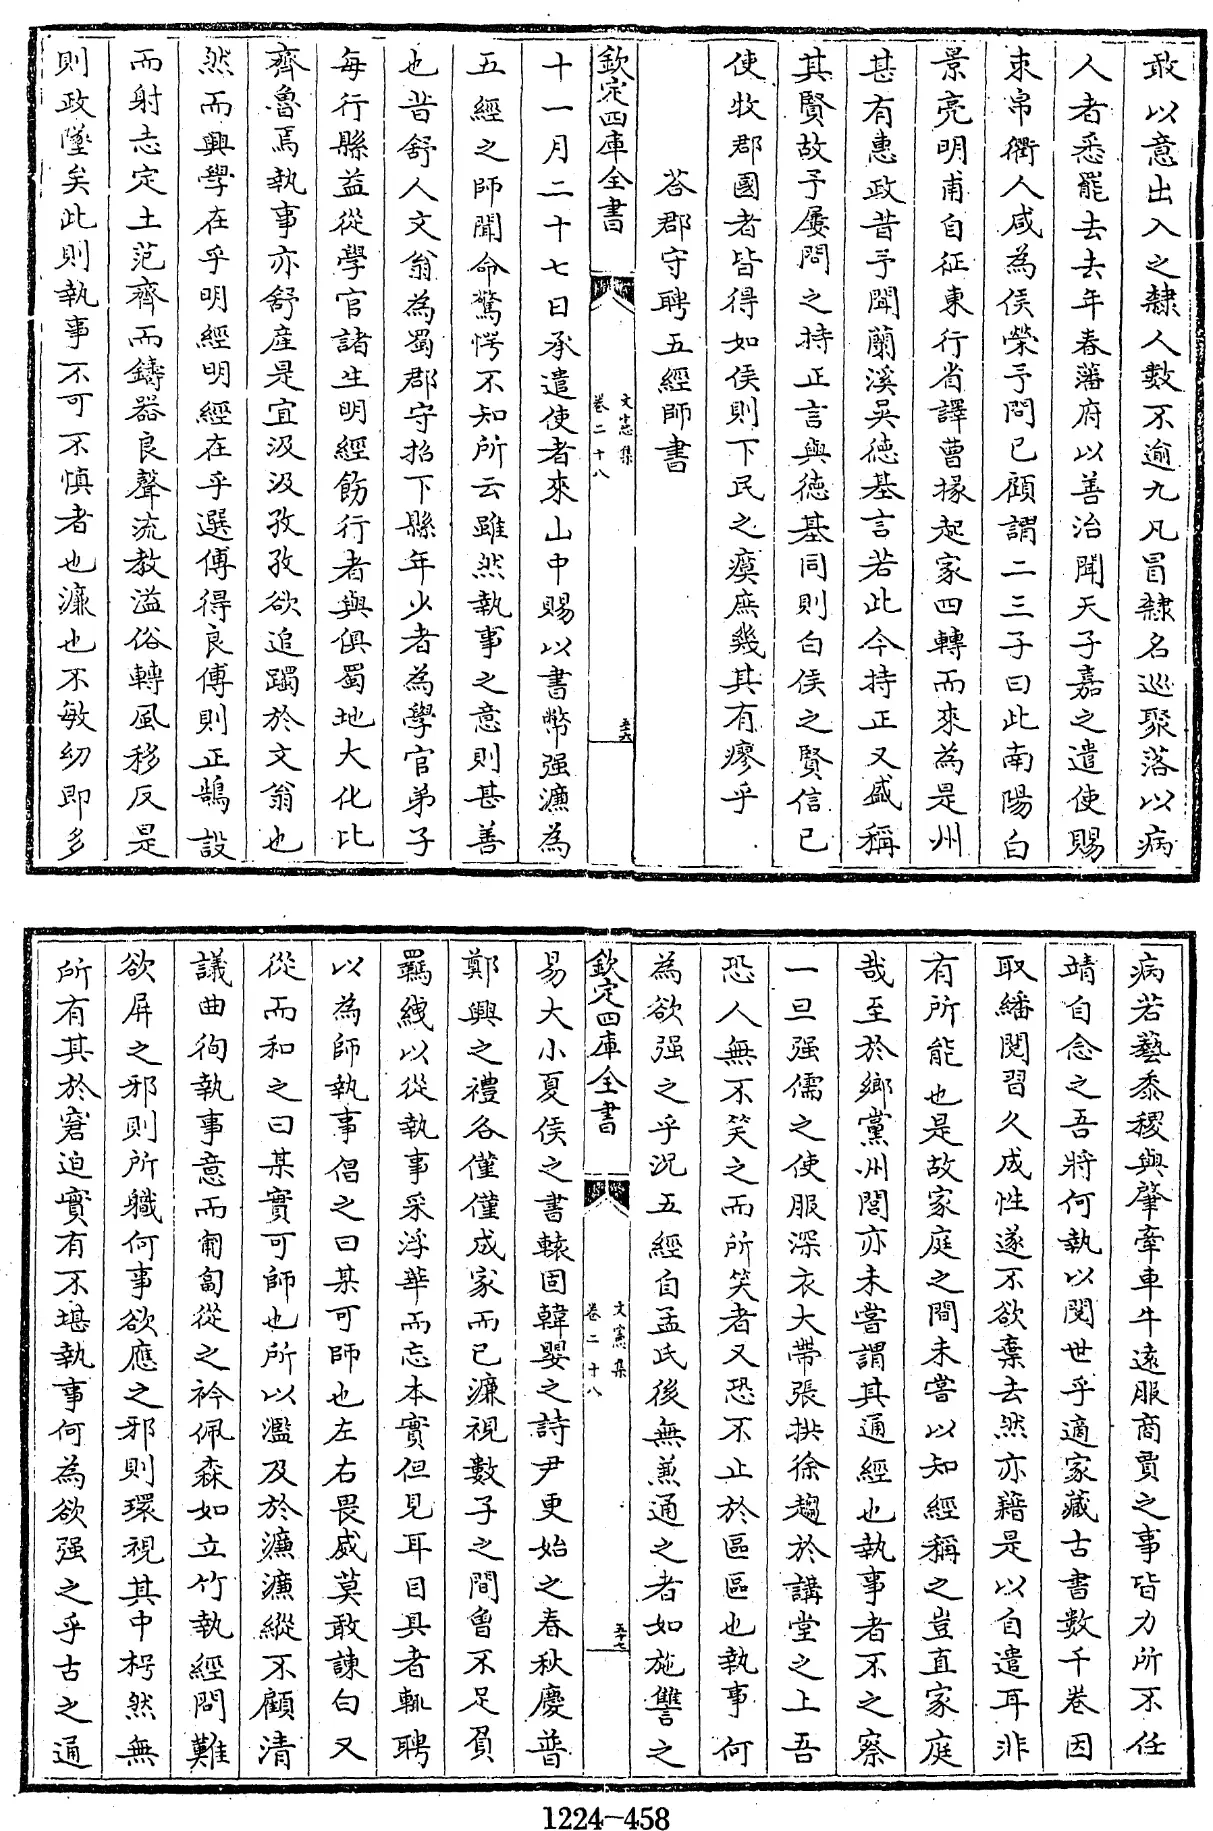 敢以意出入之隸人數不逾九凡冒隸名巡聚落以病
人者悉罷去去年春藩府以善治聞天子嘉之遣使賜
束帛衢人咸為侯榮予問已顧謂二三子曰此南陽白
景亮明甫自征東行省譯曹掾起家四轉而來為是州
甚有惠政昔予聞蘭溪吳徳基言若此今持正又盛稱
其賢故予屢問之持正言與徳基同則白侯之賢信已
使牧郡國者皆得如侯則下民之瘼庶幾其有瘳乎
答郡守聘五經師書
欽定四庫全書
文憲集
卷二十八
五六
十一月二十七日承遣使者來山中賜以書幣强濂為
五經之師聞命驚愕不知所云雖然執事之意則甚善
也昔舒人文翁為蜀郡守招下縣年少者為學官弟子
每行縣益從學官諸生明經飭行者與俱蜀地大化比
齊魯焉執事亦舒產是宜汲汲孜孜欲追躅於文翁也
然而興學在乎明經明經在乎選傅得良傅則正鵠設
而射志定土范齊而鑄器良聲流教溢俗轉風移反是
則政墜矣此則執事不可不慎者也濂也不敏幼即多
病若藝黍稷與肇牽車牛遠服商賈之事皆力所不任
靖自念之吾將何執以閱世乎適家藏古書數千卷因
取繙閱習久成性遂不欲棄去然亦藉是以自遣耳非
有所能也是故家庭之間未嘗以知經稱之豈直家庭
哉至於鄉黨州閭亦未嘗謂其通經也執事者不之察
一旦强儒之使服深衣大帶張拱徐趨於講堂之上吾
恐人無不笑之而所笑者又恐不止於區區也執事何
為欲强之乎況五經自孟氏後無兼通之者如施讐之
欽定四庫全書
文憲集
卷二十八
五十七
易大小夏侯之書轅固韓嬰之詩尹更始之春秋慶普
鄭興之禮各僅僅成家而已濂視數子之間曾不足負
羈絏以從執事采浮華而忘本實但見耳目具者輒聘
以為師執事倡之曰某可師也左右畏威莫敢諫白又
從而和之曰某實可師也所以濫及於濂濂縱不顧清
議曲徇執事意而匍匐從之衿佩森如立竹執經問難
欲屏之邪則所職何事欲應之邪則環視其中枵然無
所有其於窘迫實有不堪執事何為欲强之乎古之通
1224-458